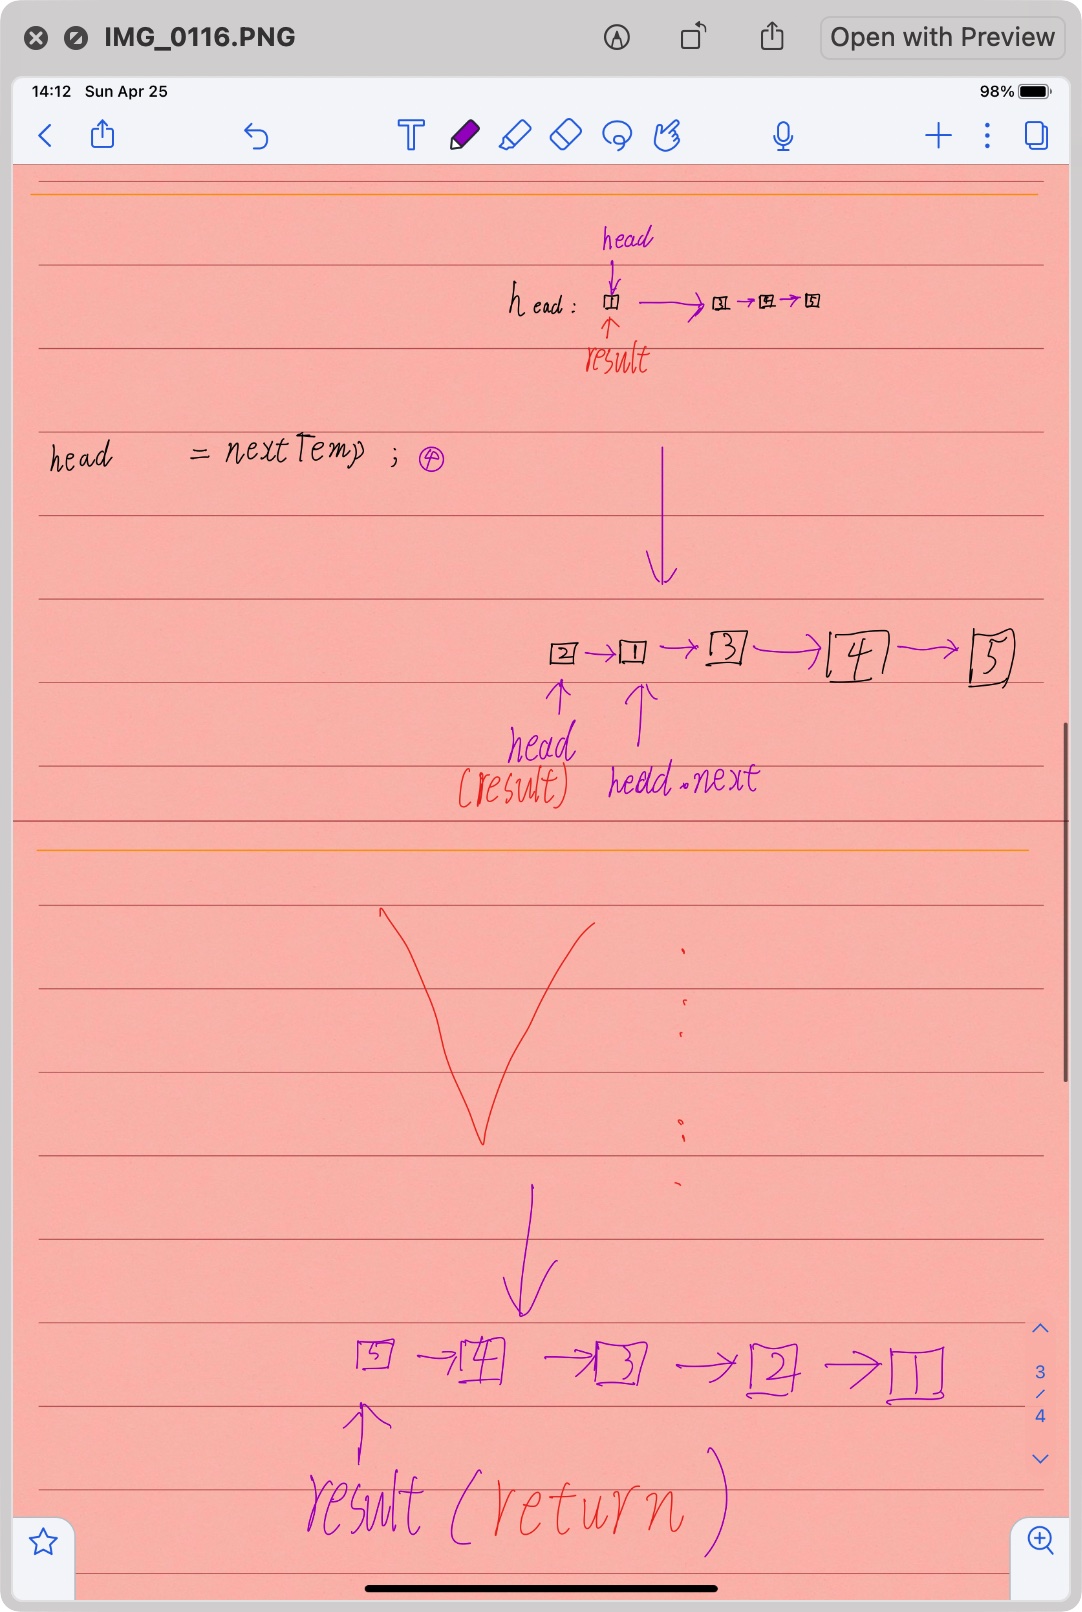 IMG_0116.PNG
Open with Preview
14:12 Sun Apr 25
98%
T
head
head: 1 3 4 5
result
head = nextTemp ; ④
2 1 3 4 5
head
(result) head.next
5 4 3 2 1
3
4
result (return)